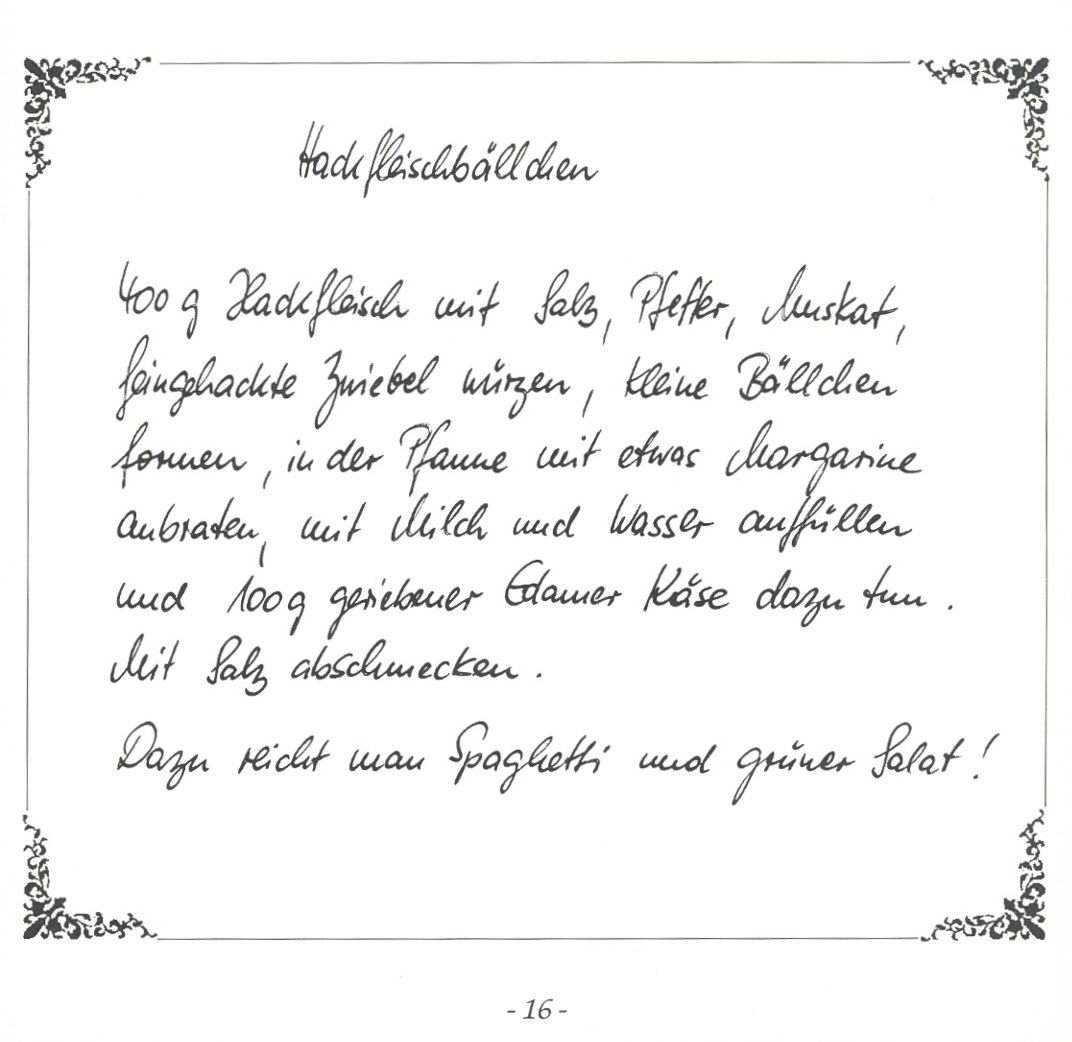 Hackfleischbällchen
400 g Hackfleisch mit Salz, Pfeffer, Muskat,
feingehackte Zwiebel würzen, kleine Bällchen
formen, in der Pfanne mit etwas Margarine
anbraten, mit Milch und Wasser auffüllen
und 100 g geriebener Edamer Käse dazu tun.
Mit Salz abschmecken.
Dazu reicht man Spaghetti und grüner Salat!
- 16 -